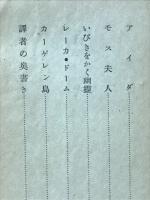 アイダ…………
モス夫人…………
いびきをかく幽霊…………
レーカ・ドーム…………
カーゲレン島…………
譯者の奥書き…………